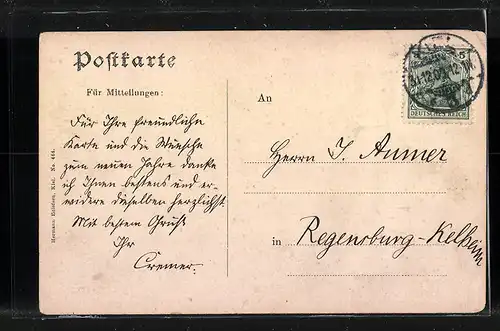 Postkarte
Für Mitteilungen:
An
Für Ihre freundliche
Karte und die Wünsche
zum neuen Jahre danke
ich Ihnen bestens und er-
widere dieselben herzlichst
Mit bestem Gruß
Ihr
Cremer.
Herrn J. Aumer
in Regensburg-Kelheim
DEUTSCHES REICH
5
Hermann Edlefsen, Kiel. No. 464.